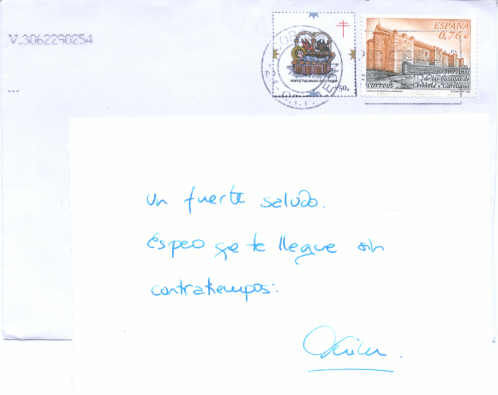 V.3062290254
ESPAÑA
0,76€
CORREOS
Un fuerte saludo.
Espero qe te llegue sin
contratiempos.